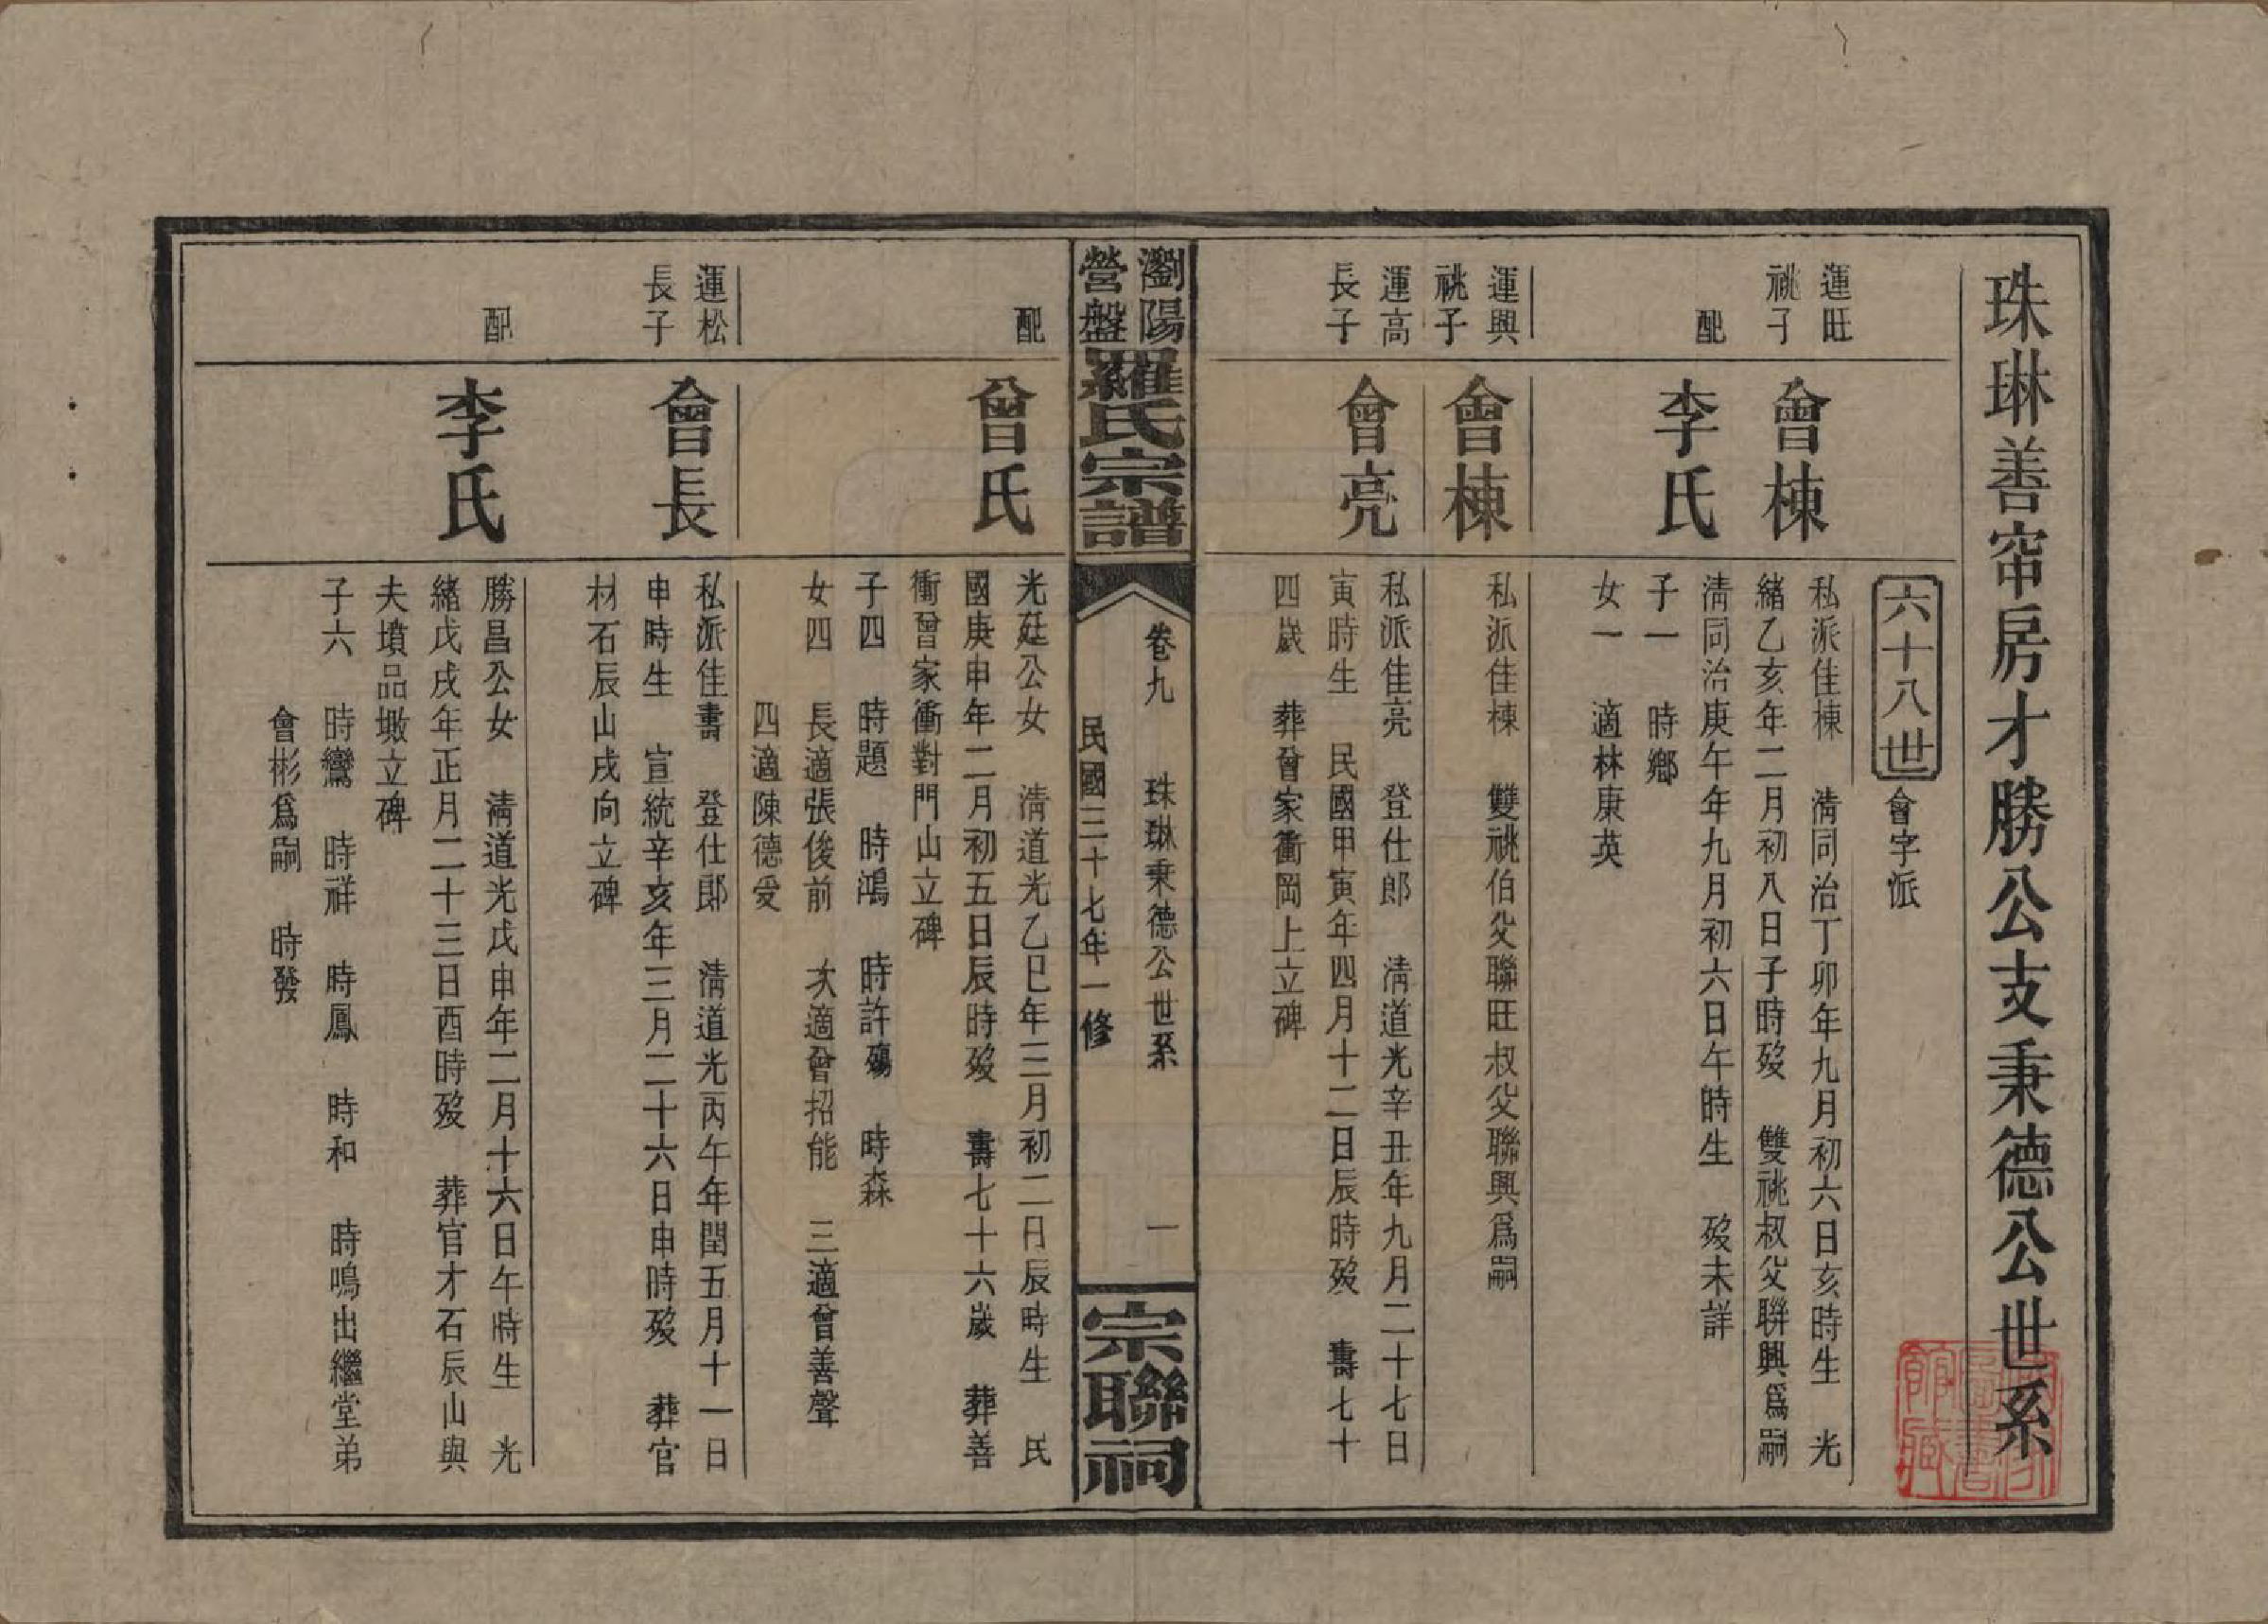 珠琳善帘房才勝公支秉德公世系
六十八世
會字派
運旺
祧子
會棟
私派佳棟　清同治丁卯年九月初六日亥時生　光
緒乙亥年二月初八日子時歿　雙祧叔父聯興爲嗣
配
李氏
清同治庚午年九月初六日午時生　歿未詳
子一　時鄉
女一　適林康英
運興
祧子
會棟
私派佳棟　雙祧伯父聯旺叔父聯興爲嗣
運高
長子
會亮
私派佳亮　登仕郎　清道光辛丑年九月二十七日
寅時生　民國甲寅年四月十二日辰時歿　壽七十
四歲　葬曾家衝岡上立碑
瀏陽
營盤
羅氏宗譜
卷九　珠琳秉德公世系　一
民國三十七年一修
宗聯祠
配
曾氏
光廷公女　清道光乙巳年三月初二日辰時生　民
國庚申年二月初五日辰時歿　壽七十六歲　葬善
衝曾家衝對門山立碑
子四　時題　時鴻　時許殤　時森
女四　長適張俊前　次適曾招能　三適曾善聲
四適陳德受
運松
長子
會長
私派佳書　登仕郎　清道光丙午年閏五月十一日
申時生　宣統辛亥年三月二十六日申時歿　葬官
材石辰山戌向立碑
配
李氏
勝昌公女　清道光戊申年二月十六日午時生　光
緒戊戌年正月二十三日酉時歿　葬官才石辰山與
夫墳品墩立碑
子六　時鸞　時祥　時鳳　時和　時鳴出繼堂弟
會彬爲嗣　時發